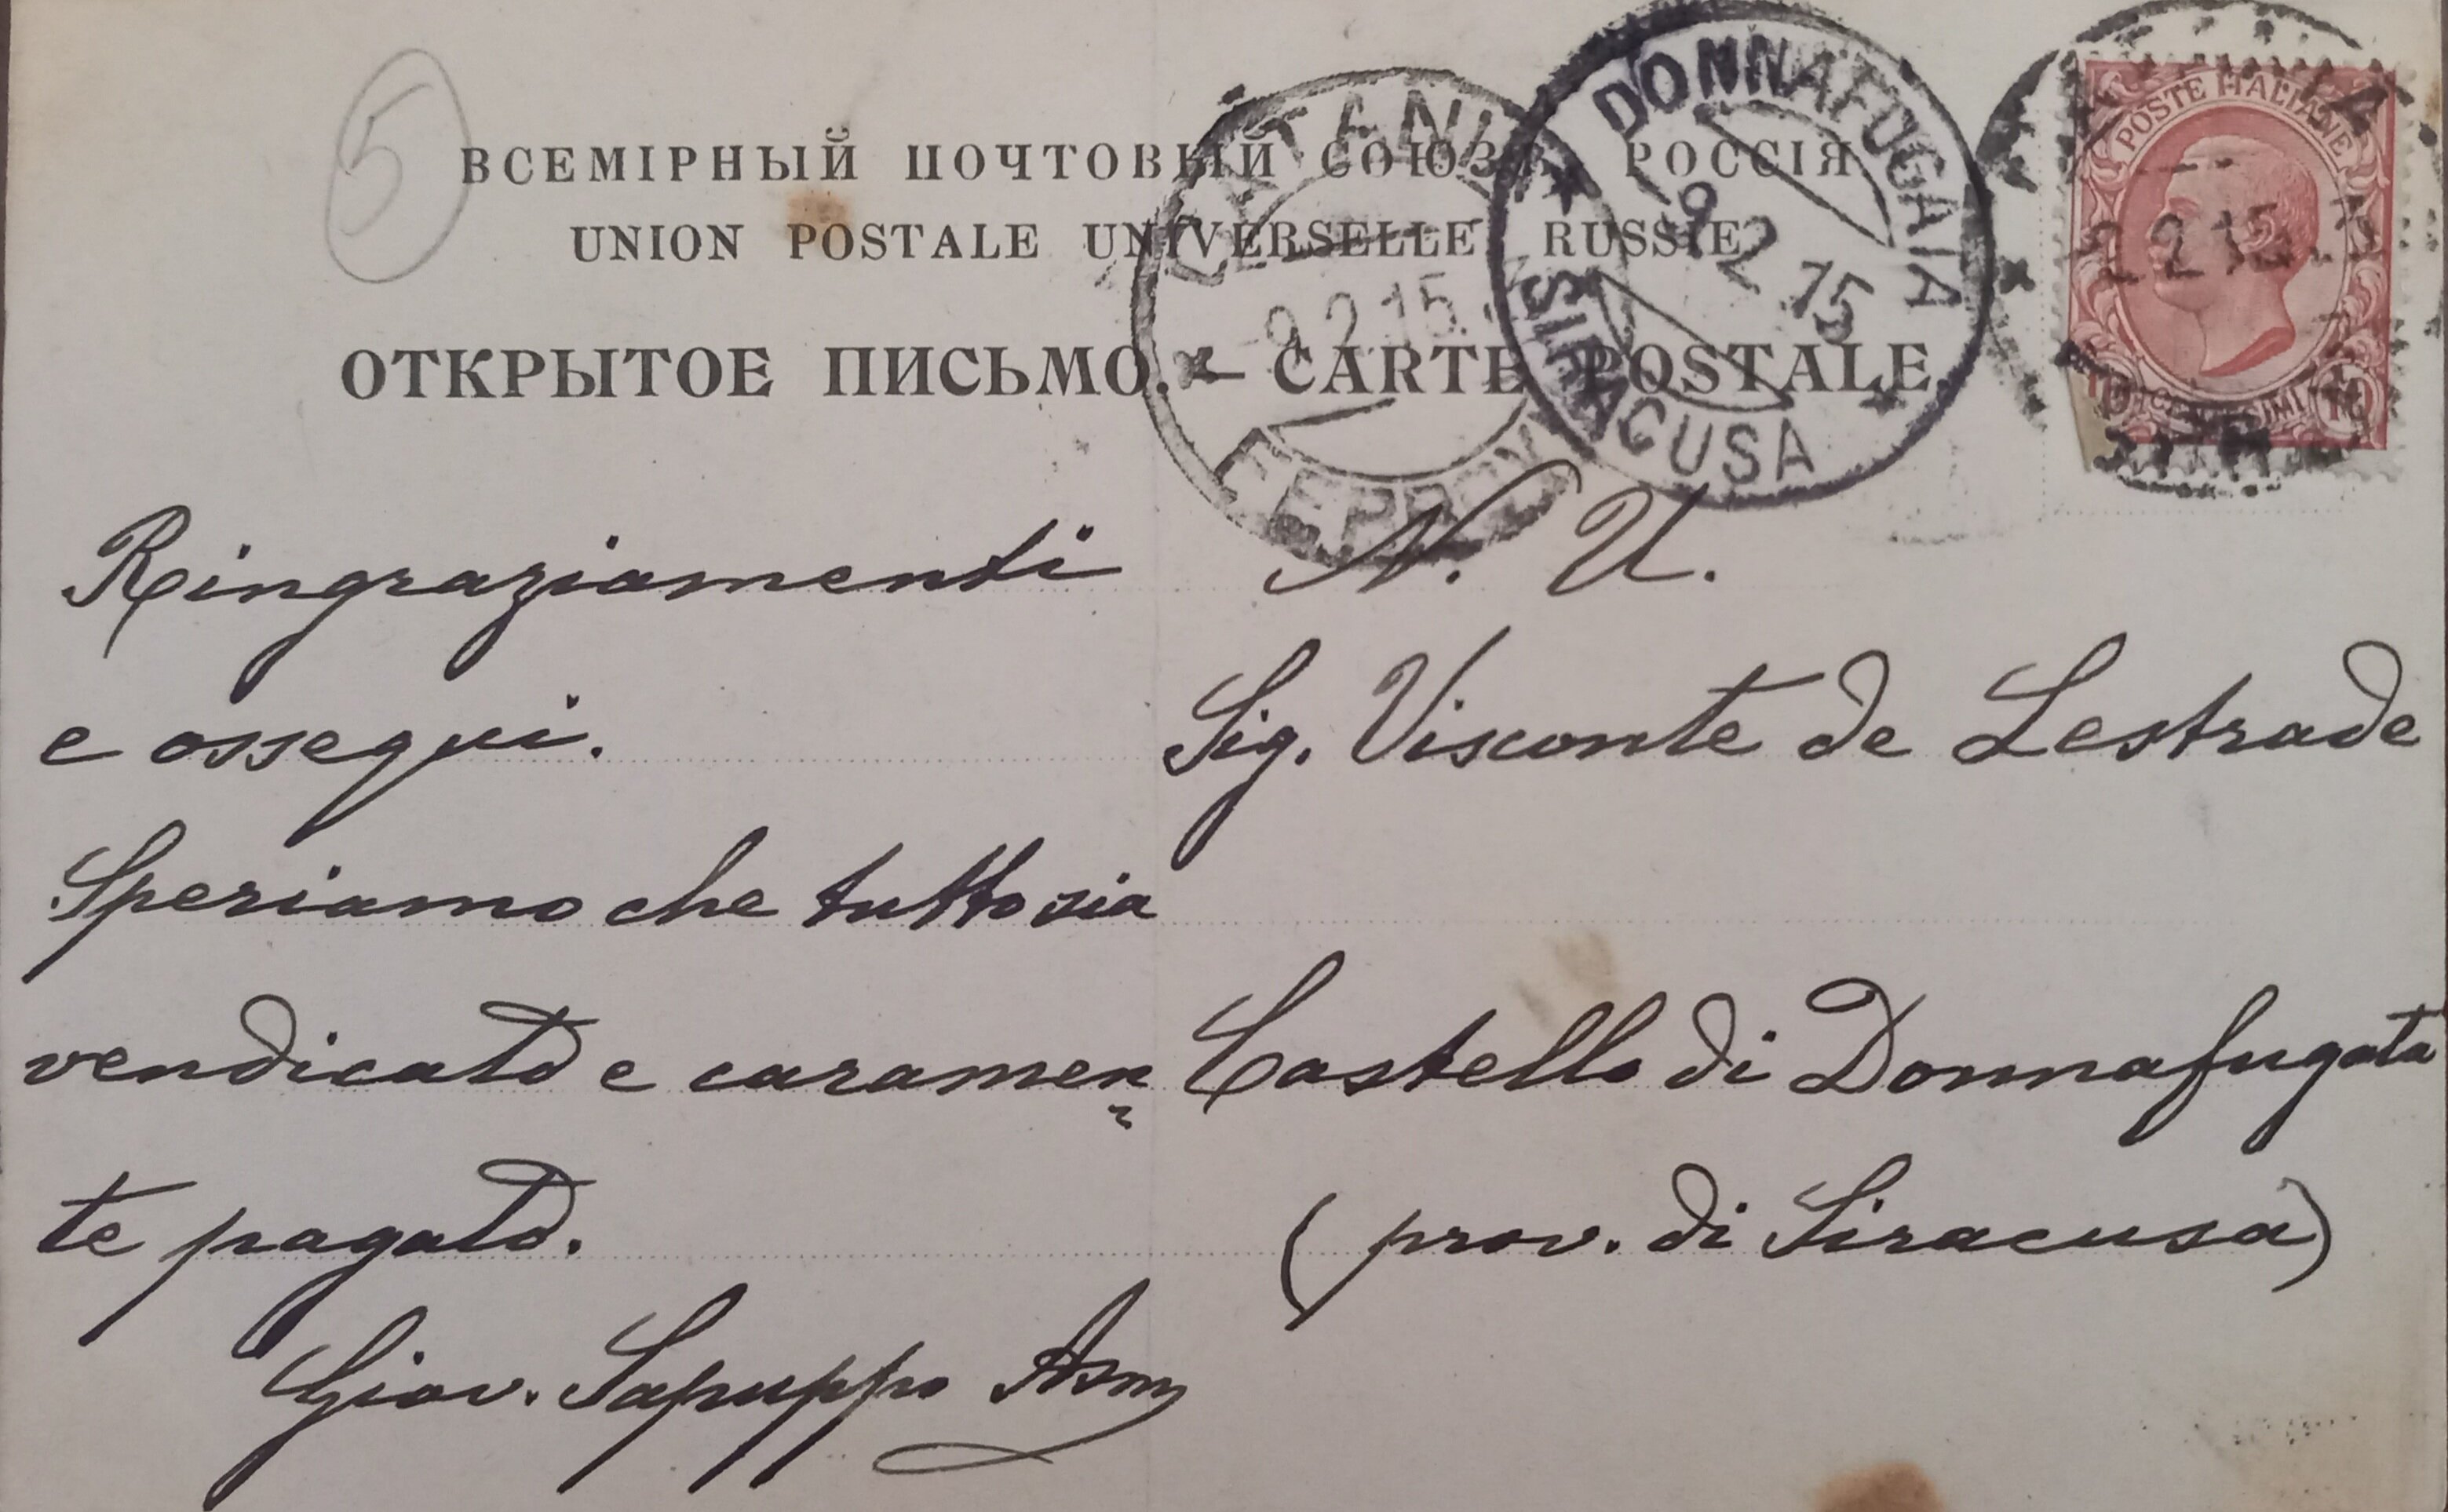 5
ВСЕМІРНЫЙ ПОЧТОВЫЙ СОЮЗЪ. РОССІЯ
UNION POSTALE UNIVERSELLE RUSSIE
ОТКРЫТОЕ ПИСЬМО. — CARTE POSTALE.
CATANIA
9.2.15
FERROVIA
DONNAFUGATA
-9.2.15
SIRACUSA
POSTE ITALIANE
10 CENTESIMI 10
Ringraziamenti
e ossequi.
Speriamo che tutto sia
vendicato e caramen
te pagato.
Giov. Sapuppo Asm
N. U.
Sig. Visconte de Lestrade
Castello di Donnafugata
(prov. di Siracusa)